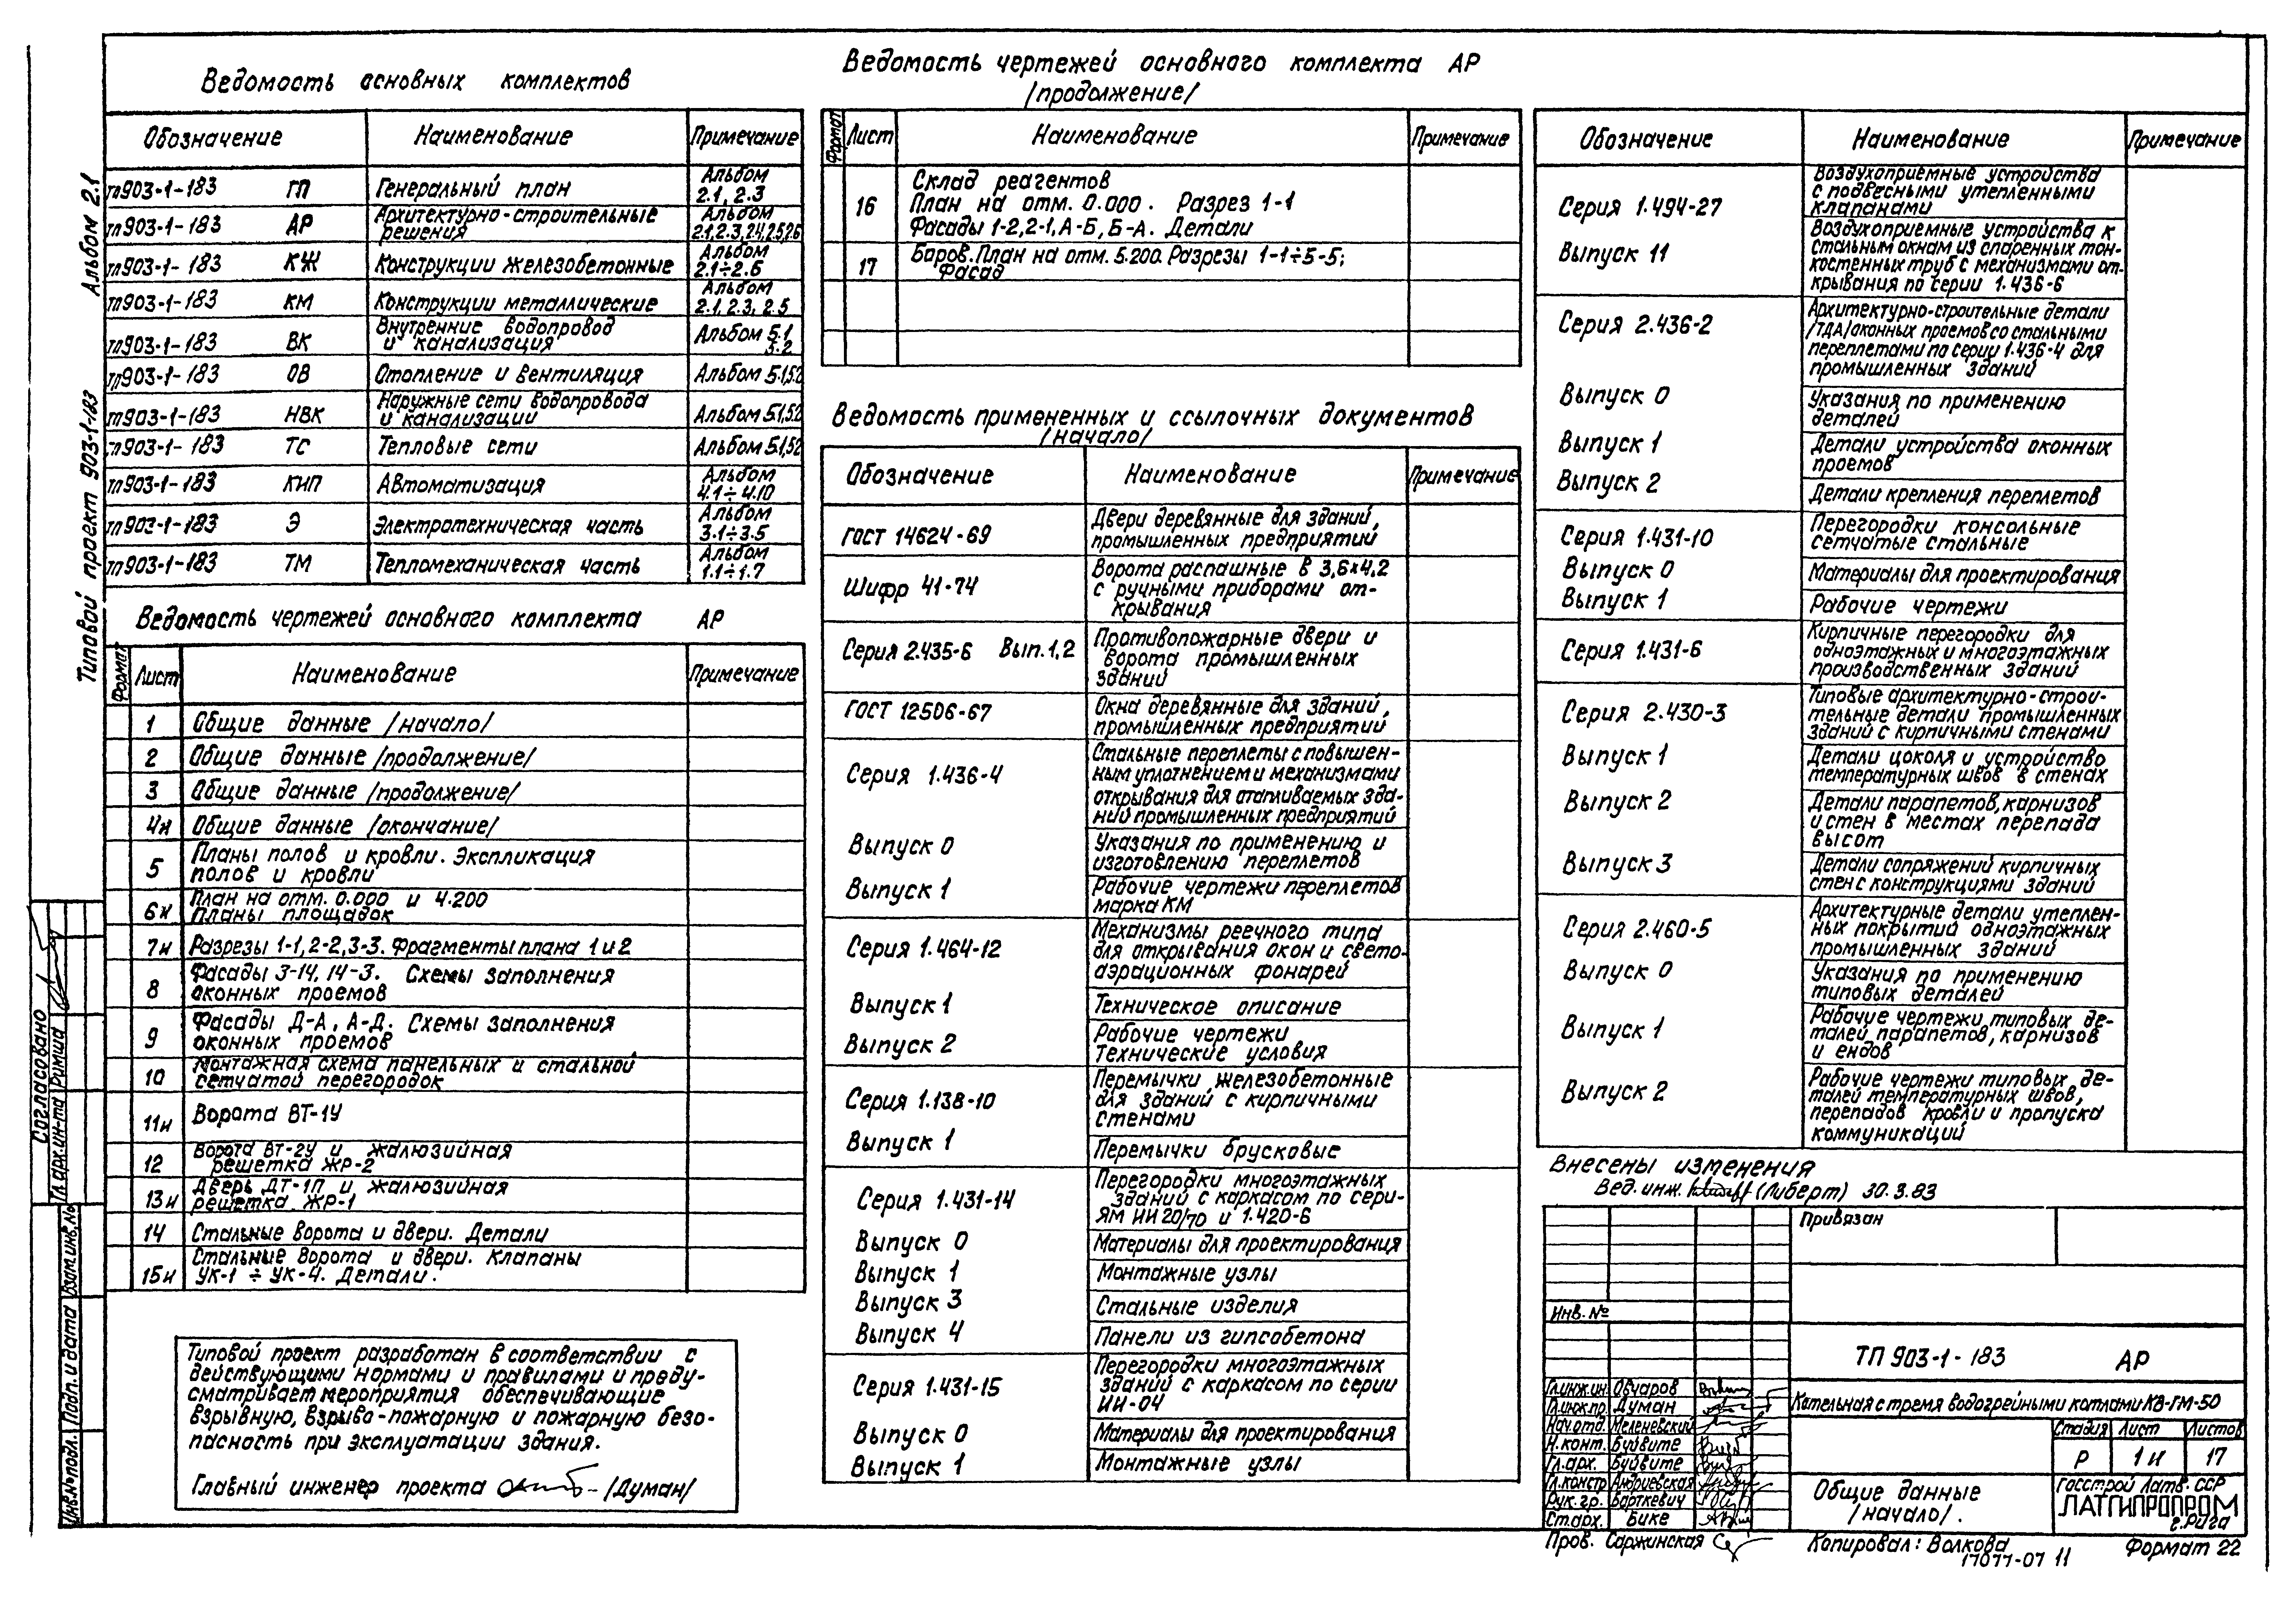 Альбом 2.1
Типовой проект 903-1-183
Ведомость основных комплектов
Обозначение Наименование Примечание
ТП903-1-183 ГП Генеральный план Альбом
2.1, 2.3
ТП903-1-183 АР Архитектурно-строительные
решения Альбом
2.1,2.3,2.4,2.5,2.6
ТП903-1-183 КЖ Конструкции железобетонные Альбом
2.1÷2.6
ТП903-1-183 КМ Конструкции металлические Альбом
2.1, 2.3, 2.5
ТП903-1-183 ВК Внутренние водопровод
и канализация Альбом 5.1
5.2
ТП903-1-183 ОВ Отопление и вентиляция Альбом 5.1,5.2
ТП903-1-183 НВК Наружные сети водопровода
и канализации Альбом 5.1,5.2
ТП903-1-183 ТС Тепловые сети Альбом 5.1,5.2
ТП903-1-183 КИП Автоматизация Альбом
4.1÷4.10
ТП903-1-183 Э Электротехническая часть Альбом
3.1÷3.5
ТП903-1-183 ТМ Тепломеханическая часть Альбом
1.1÷1.7
Ведомость чертежей основного комплекта АР
Формат Лист Наименование Примечание
1 Общие данные /начало/
2 Общие данные /продолжение/
3 Общие данные /продолжение/
4и Общие данные /окончание/
5 Планы полов и кровли. Экспликация
полов и кровли
6и План на отм. 0.000 и 4.200
Планы площадок
7и Разрезы 1-1, 2-2, 3-3. Фрагменты плана 1 и 2
8 Фасады 3-14, 14-3. Схемы заполнения
оконных проемов
9 Фасады Д-А, А-Д. Схемы заполнения
оконных проемов
10 Монтажная схема панельных и стальной
сетчатой перегородок
11и Ворота ВТ-1У
12 Ворота ВТ-2У и жалюзийная
решетка ЖР-2
13и Дверь ДТ-1П и жалюзийная
решетка ЖР-1
14 Стальные ворота и двери. Детали
15и Стальные ворота и двери. Клапаны
УК-1 ÷ УК-4. Детали.
Типовой проект разработан в соответствии с
действующими нормами и правилами и преду-
сматривает мероприятия обеспечивающие
взрывную, взрыво-пожарную и пожарную безо-
пасность при эксплуатации здания.
Главный инженер проекта /Думан/
Ведомость чертежей основного комплекта АР
/продолжение/
Формат Лист Наименование Примечание
16 Склад реагентов
План на отм. 0.000. Разрез 1-1
Фасады 1-2,2-1,А-Б,Б-А. Детали
17 Боров. План на отм. 5.200. Разрезы 1-1÷5-5;
Фасад
Ведомость примененных и ссылочных документов
/начало/
Обозначение Наименование Примечание
ГОСТ 14624-69 Двери деревянные для зданий,
промышленных предприятий
Шифр 41-74 Ворота распашные в 3,6х4,2
с ручными приборами от-
крывания
Серия 2.435-6 Вып.1,2 Противопожарные двери и
ворота промышленных
зданий
ГОСТ 12506-67 Окна деревянные для зданий,
промышленных предприятий
Серия 1.436-4 Стальные переплеты с повышен-
ным уплотнением и механизмами
открывания для отапливаемых зда-
ний промышленных предприятий
Выпуск 0 Указания по применению и
изготовлению переплетов
Выпуск 1 Рабочие чертежи переплетов
марка КМ
Серия 1.464-12 Механизмы реечного типа
для открывания окон и свето-
аэрационных фонарей
Выпуск 1 Техническое описание
Выпуск 2 Рабочие чертежи
Технические условия
Серия 1.138-10 Перемычки железобетонные
для зданий с кирпичными
стенами
Выпуск 1 Перемычки брусковые
Серия 1.431-14 Перегородки многоэтажных
зданий с каркасом по сери-
ям ИИ 20/70 и 1.420-6
Выпуск 0 Материалы для проектирования
Выпуск 1 Монтажные узлы
Выпуск 3 Стальные изделия
Выпуск 4 Панели из гипсобетона
Серия 1.431-15 Перегородки многоэтажных
зданий с каркасом по серии
ИИ-04
Выпуск 0 Материалы для проектирования
Выпуск 1 Монтажные узлы
Обозначение Наименование Примечание
Серия 1.494-27 Воздухоприемные устройства
с подвесными утепленными
клапанами
Выпуск 11 Воздухоприемные устройства к
стальным окнам из спаренных тон-
костенных труб с механизмами от-
крывания по серии 1.436-6
Серия 2.436-2 Архитектурно-строительные детали
/ТДА/оконных проемов со стальными
переплетами по серии 1.436-4 для
промышленных зданий
Выпуск 0 Указания по применению
деталей
Выпуск 1 Детали устройства оконных
проемов
Выпуск 2 Детали крепления переплетов
Серия 1.431-10 Перегородки консольные
сетчатые стальные
Выпуск 0 Материалы для проектирования
Выпуск 1 Рабочие чертежи
Серия 1.431-6 Кирпичные перегородки для
одноэтажных и многоэтажных
производственных зданий
Серия 2.430-3 Типовые архитектурно-строи-
тельные детали промышленных
зданий с кирпичными стенами
Выпуск 1 Детали цоколя и устройство
температурных швов в стенах
Выпуск 2 Детали парапетов, карнизов
и стен в местах перепада
высот
Выпуск 3 Детали сопряжений кирпичных
стен с конструкциями зданий
Серия 2.460-5 Архитектурные детали утеплен-
ных покрытий одноэтажных
промышленных зданий
Выпуск 0 Указания по применению
типовых деталей
Выпуск 1 Рабочие чертежи типовых де-
талей парапетов, карнизов
и ендов
Выпуск 2 Рабочие чертежи типовых де-
талей температурных швов,
перепадов кровли и пропуска
коммуникаций
Внесены изменения
Вед. инж. (Либерт) 30.3.83
Привязан
Инв. №
ТП 903-1-183 АР
Котельная с тремя водогрейными котлами КВ-ГМ-50
Гл.инж.ин. Овчаров
Гл.инж.пр. Думан
Нач.отд. Меленевский
Н.конт. Буйвите
Гл.арх. Буйвите
Гл.констр Андриевская
Рук.гр. Барткевич
Ст.арх. Бике
Пров. Саржинская
Стадия Лист Листов
Р 1и 17
Общие данные
/начало/.
Госстрой Латв. ССР
ЛАТГИПРОПРОМ
г.Рига
Копировал: Волкова
17077-07 11
Формат 22
Согласовано
Гл.арх.ин-та Римша
Взам.инв.№
Подп. и дата
Инв.№подл.